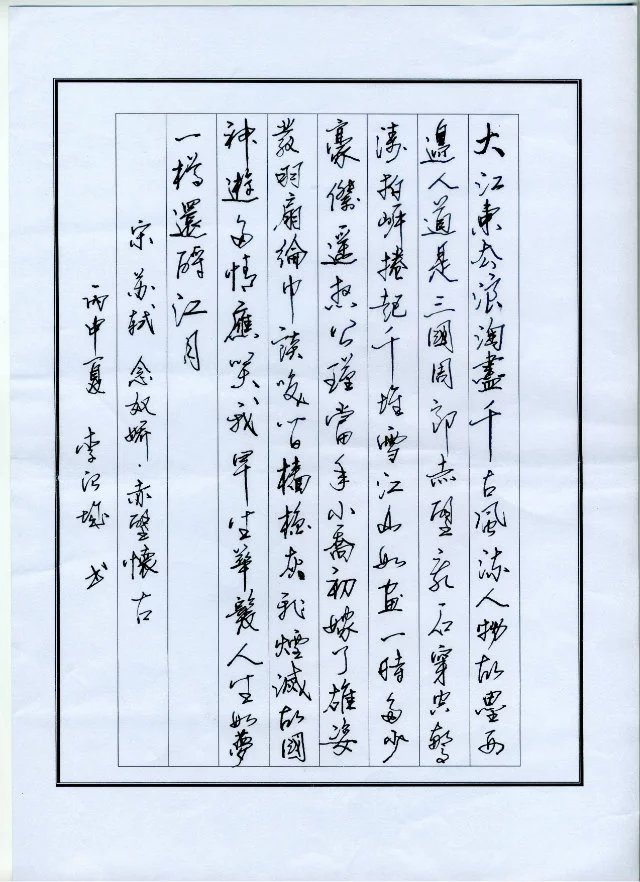 大江東去浪淘盡千古風流人物故壘西
邊人道是三國周郎赤壁亂石穿空驚
濤拍岸捲起千堆雪江山如畫一時多少
豪傑遥想公瑾當年小喬初嫁了雄姿
發羽扇綸巾談咲間檣櫓灰飛煙滅故國
神遊多情應笑我早生華髮人生如夢
一樽還酹江月
宋 苏軾 念奴嬌·赤壁懷古
丙申夏 李 书